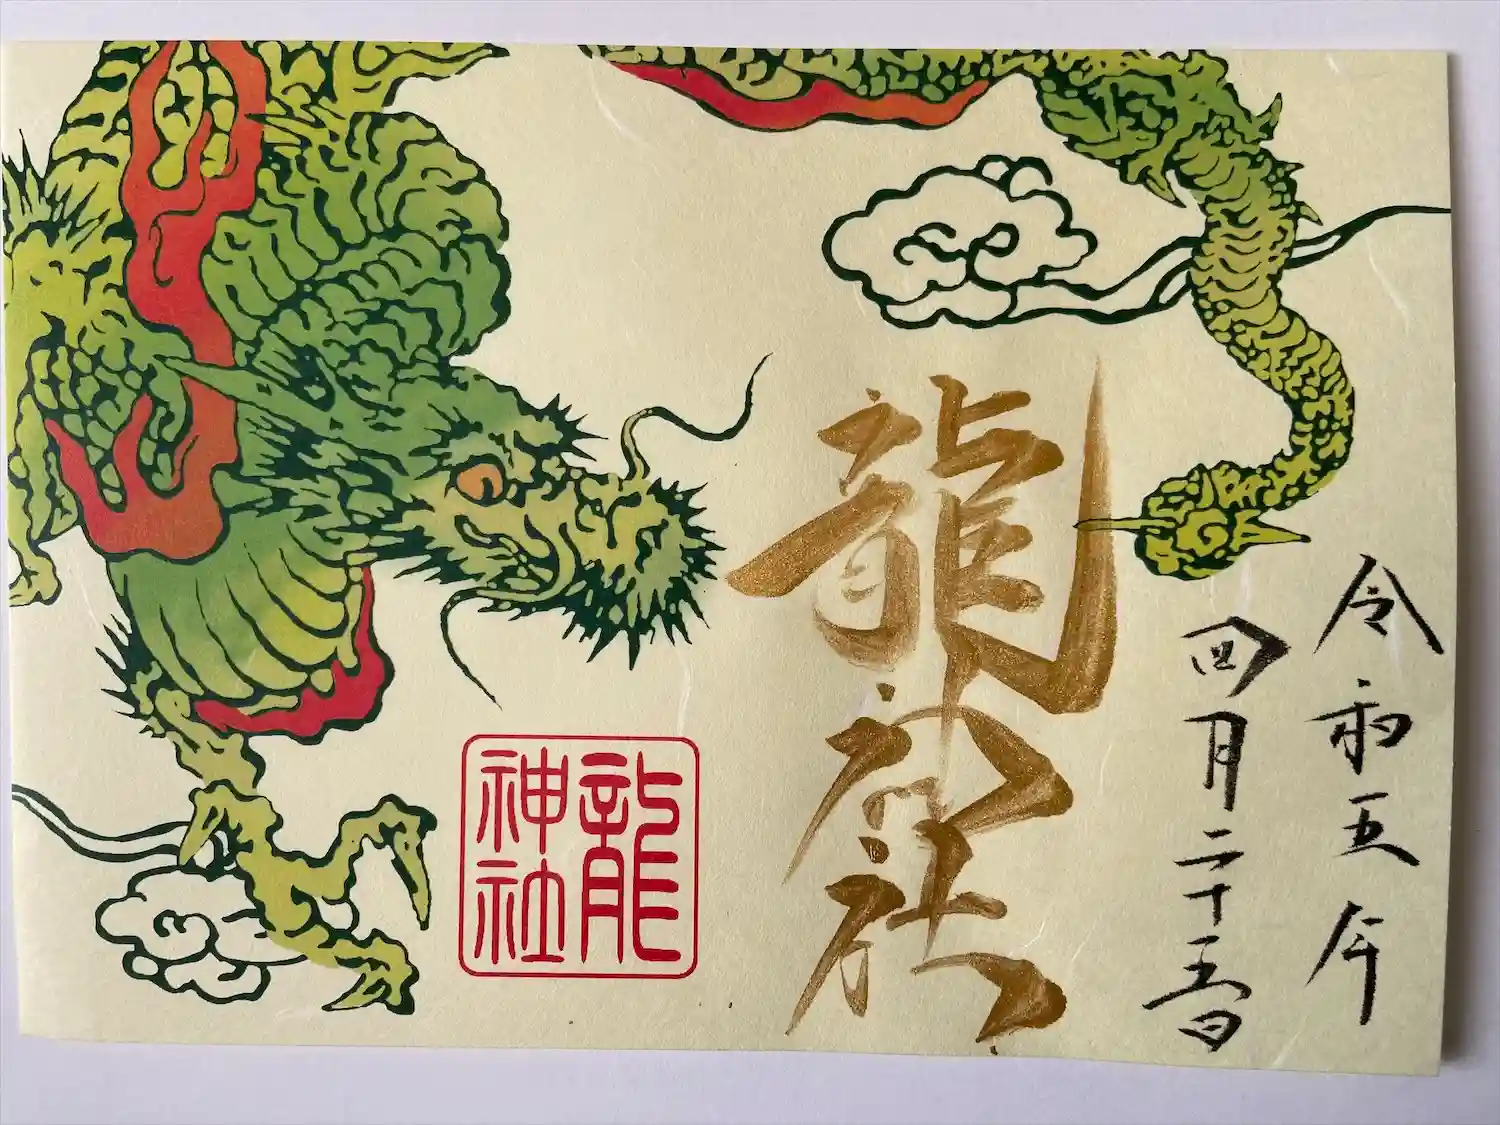 令和五年
四月二十五日
龍神社
龍
神社